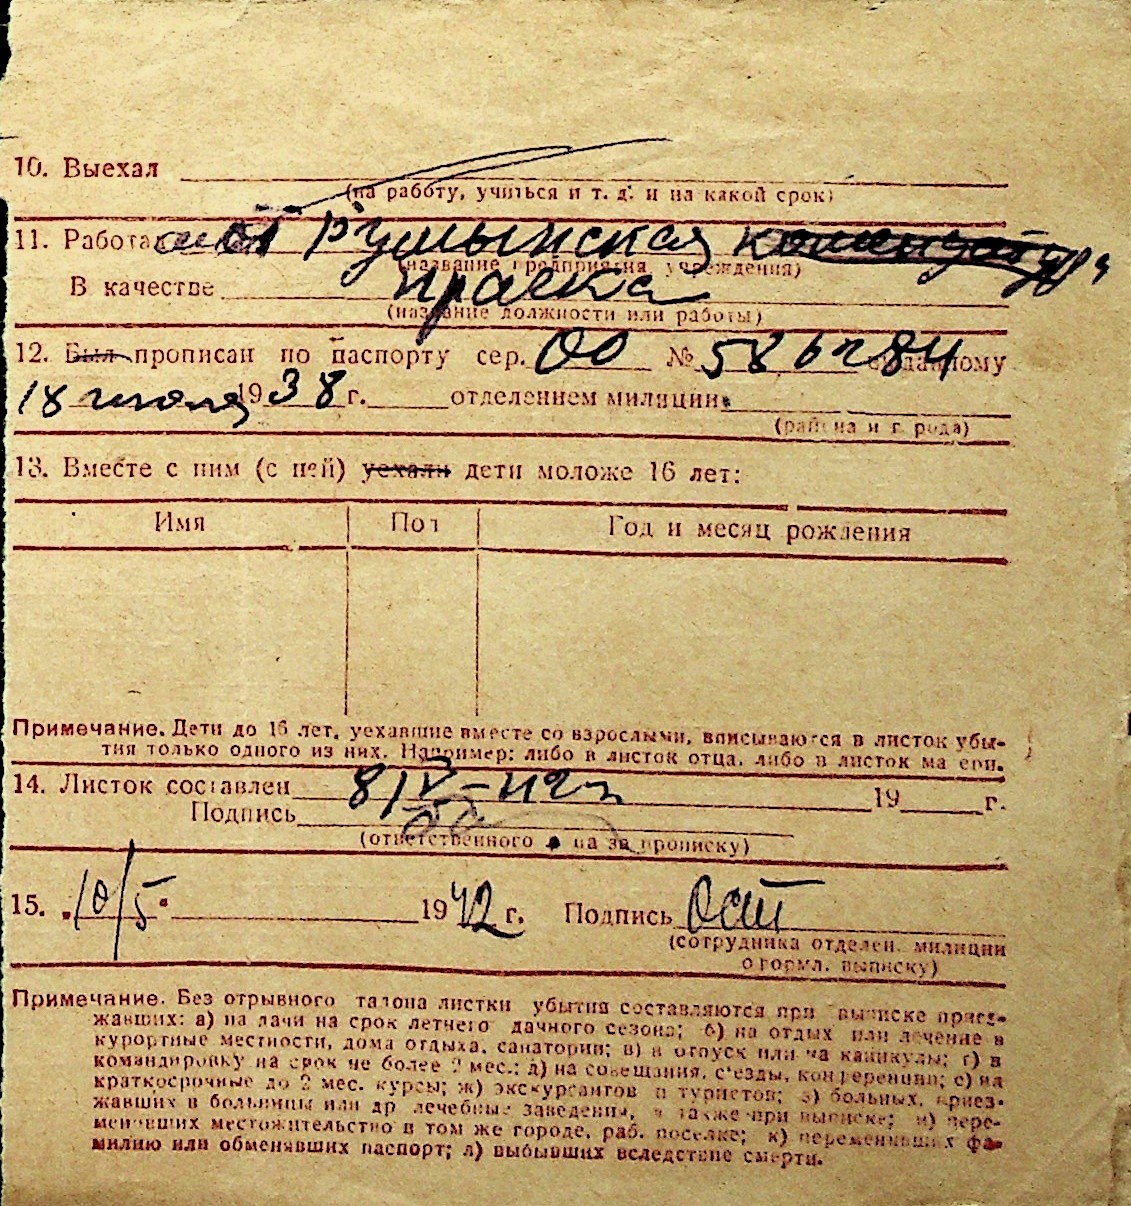 10. Выехал
(на работу, учиться и т. д. и на какой срок)
11. Работа Румынская комендатура
(название предприятия учреждения)
В качестве прачка
(название должности или работы)
12. Был прописан по паспорту сер. ОО № 586784 выданному
18 июля 1938 г. отделением милиции
(района и города)
13. Вместе с ним (с ней) уехали дети моложе 16 лет:
Имя Пол Год и месяц рождения
Примечание. Дети до 16 лет, уехавшие вместе со взрослыми, вписываются в листок убы-
тия только одного из них. Например: либо в листок отца, либо в листок матери.
14. Листок составлен 8/V-42 г. 19 г.
Подпись
(ответственного лица за прописку)
15. „10/5“ 1942 г. Подпись
(сотрудника отделен. милиции
оформл. выписку)
Примечание. Без отрывного талона листки убытия составляются при выписке приез-
жавших: а) на дачи на срок летнего дачного сезона; б) на отдых или лечение в
курортные местности, дома отдыха, санатории; в) в отпуск или на каникулы; г) в
командировку на срок не более 2 мес.; д) на совещания, съезды, конференции; е) на
краткосрочные до 2 мес. курсы; ж) экскурсантов и туристов; з) больных, приез-
жавших в больницы или др лечебные заведения, а также при выписке; и) пере-
менивших местожительство в том же городе, раб. поселке; к) переменивших фа-
милию или обменявших паспорт; л) выбывших вследствие смерти.